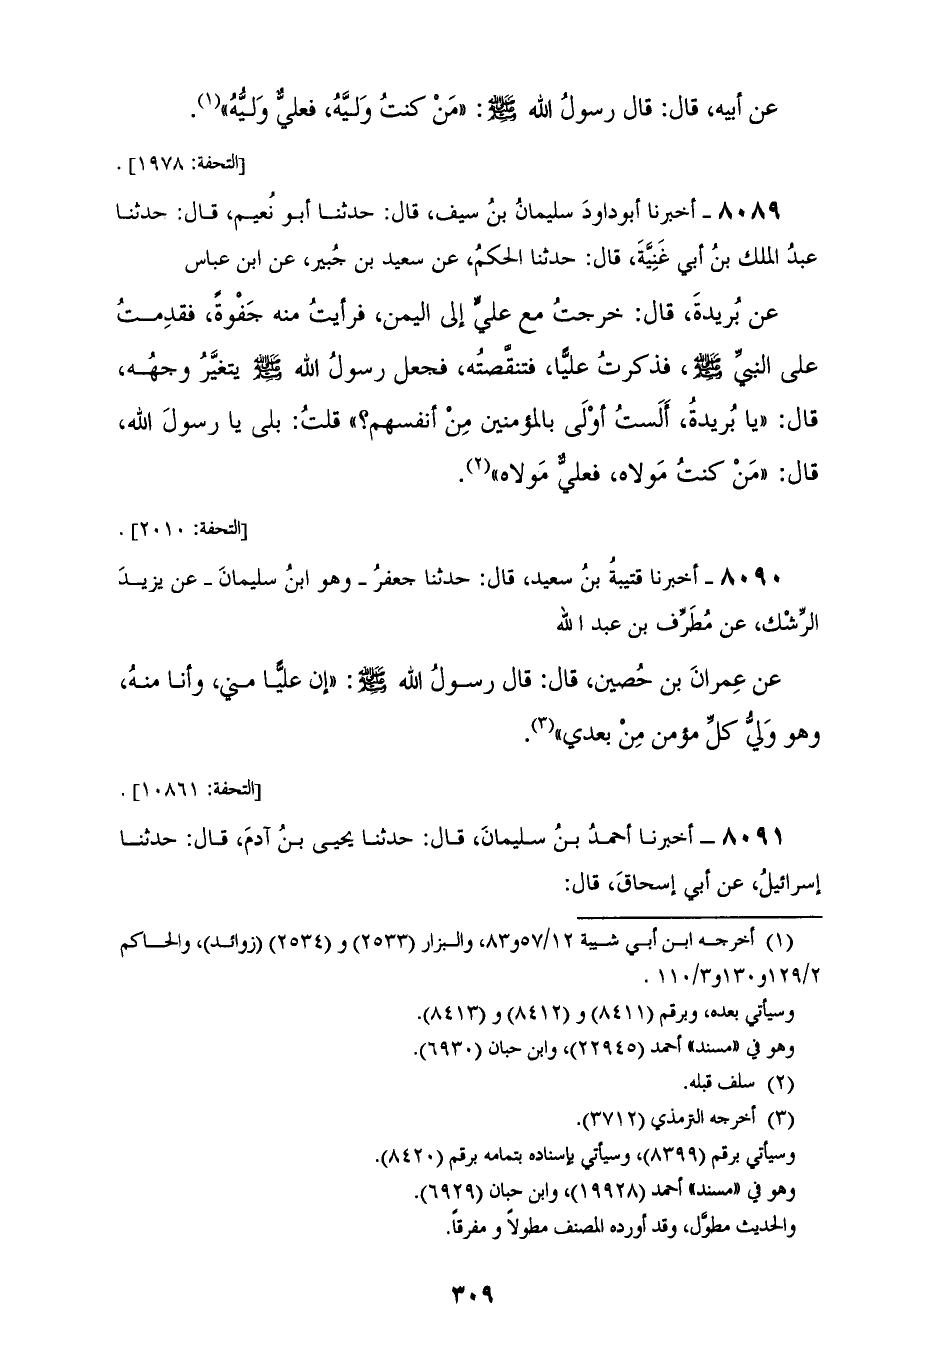 عن أبيه، قال: قال رسولُ الله ﷺ: «مَنْ كنتُ وَليَّهُ، فعليٌّ وَليُّهُ»(١).
[التحفة: ١٩٧٨].
٨٠٨٩ ـ أخبرنا أبوداودَ سليمانُ بنُ سيف، قال: حدثنا أبو نُعيم، قال: حدثنا
عبدُ الملك بنُ أبي غَنِيَّةَ، قال: حدثنا الحكمُ، عن سعيد بن جُبير، عن ابن عباس
عن بُريدةَ، قال: خرجتُ مع عليٍّ إلى اليمن، فرأيتُ منه جَفْوةً، فقدِمتُ
على النبيِّ ﷺ، فذكرتُ عليًّا، فتنقَّصتُه، فجعل رسولُ الله ﷺ يتغيَّرُ وجهُه،
قال: «يا بُريدةُ، أَلَستُ أوْلَى بالمؤمنين مِنْ أنفسهم؟» قلتُ: بلى يا رسولَ الله،
قال: «مَنْ كنتُ مَولاه، فعليٌّ مَولاه»(٢).
[التحفة: ٢٠١٠].
٨٠٩٠ ـ أخبرنا قتيبةُ بنُ سعيد، قال: حدثنا جعفرُ ـ وهو ابنُ سليمانَ ـ عن يزيدَ
الرِّشْك، عن مُطَرِّف بن عبد الله
عن عِمرانَ بن حُصين، قال: قال رسولُ الله ﷺ: «إن عليًّا مني، وأنا منهُ،
وهو وَليُّ كلِّ مؤمن مِنْ بعدي»(٣).
[التحفة: ١٠٨٦١].
٨٠٩١ ـ أخبرنا أحمدُ بنُ سليمانَ، قال: حدثنا يحيى بنُ آدمَ، قال: حدثنا
إسرائيلُ، عن أبي إسحاقَ، قال:
(١) أخرجه ابن أبي شيبة ٥٧/١٢و٨٣، والبزار (٢٥٣٣) و (٢٥٣٤) (زوائد)، والحاكم
١٢٩/٢و١٣٠و١١٠/٣.
وسيأتي بعده، وبرقم (٨٤١١) و (٨٤١٢) و (٨٤١٣).
وهو في «مسند» أحمد (٢٢٩٤٥)، وابن حبان (٦٩٣٠).
(٢) سلف قبله.
(٣) أخرجه الترمذي (٣٧١٢).
وسيأتي برقم (٨٣٩٩)، وسيأتي بإسناده بتمامه برقم (٨٤٢٠).
وهو في «مسند» أحمد (١٩٩٢٨)، وابن حبان (٦٩٢٩).
والحديث مطوَّل، وقد أورده المصنف مطولاً و مفرقاً.
٣٠٩